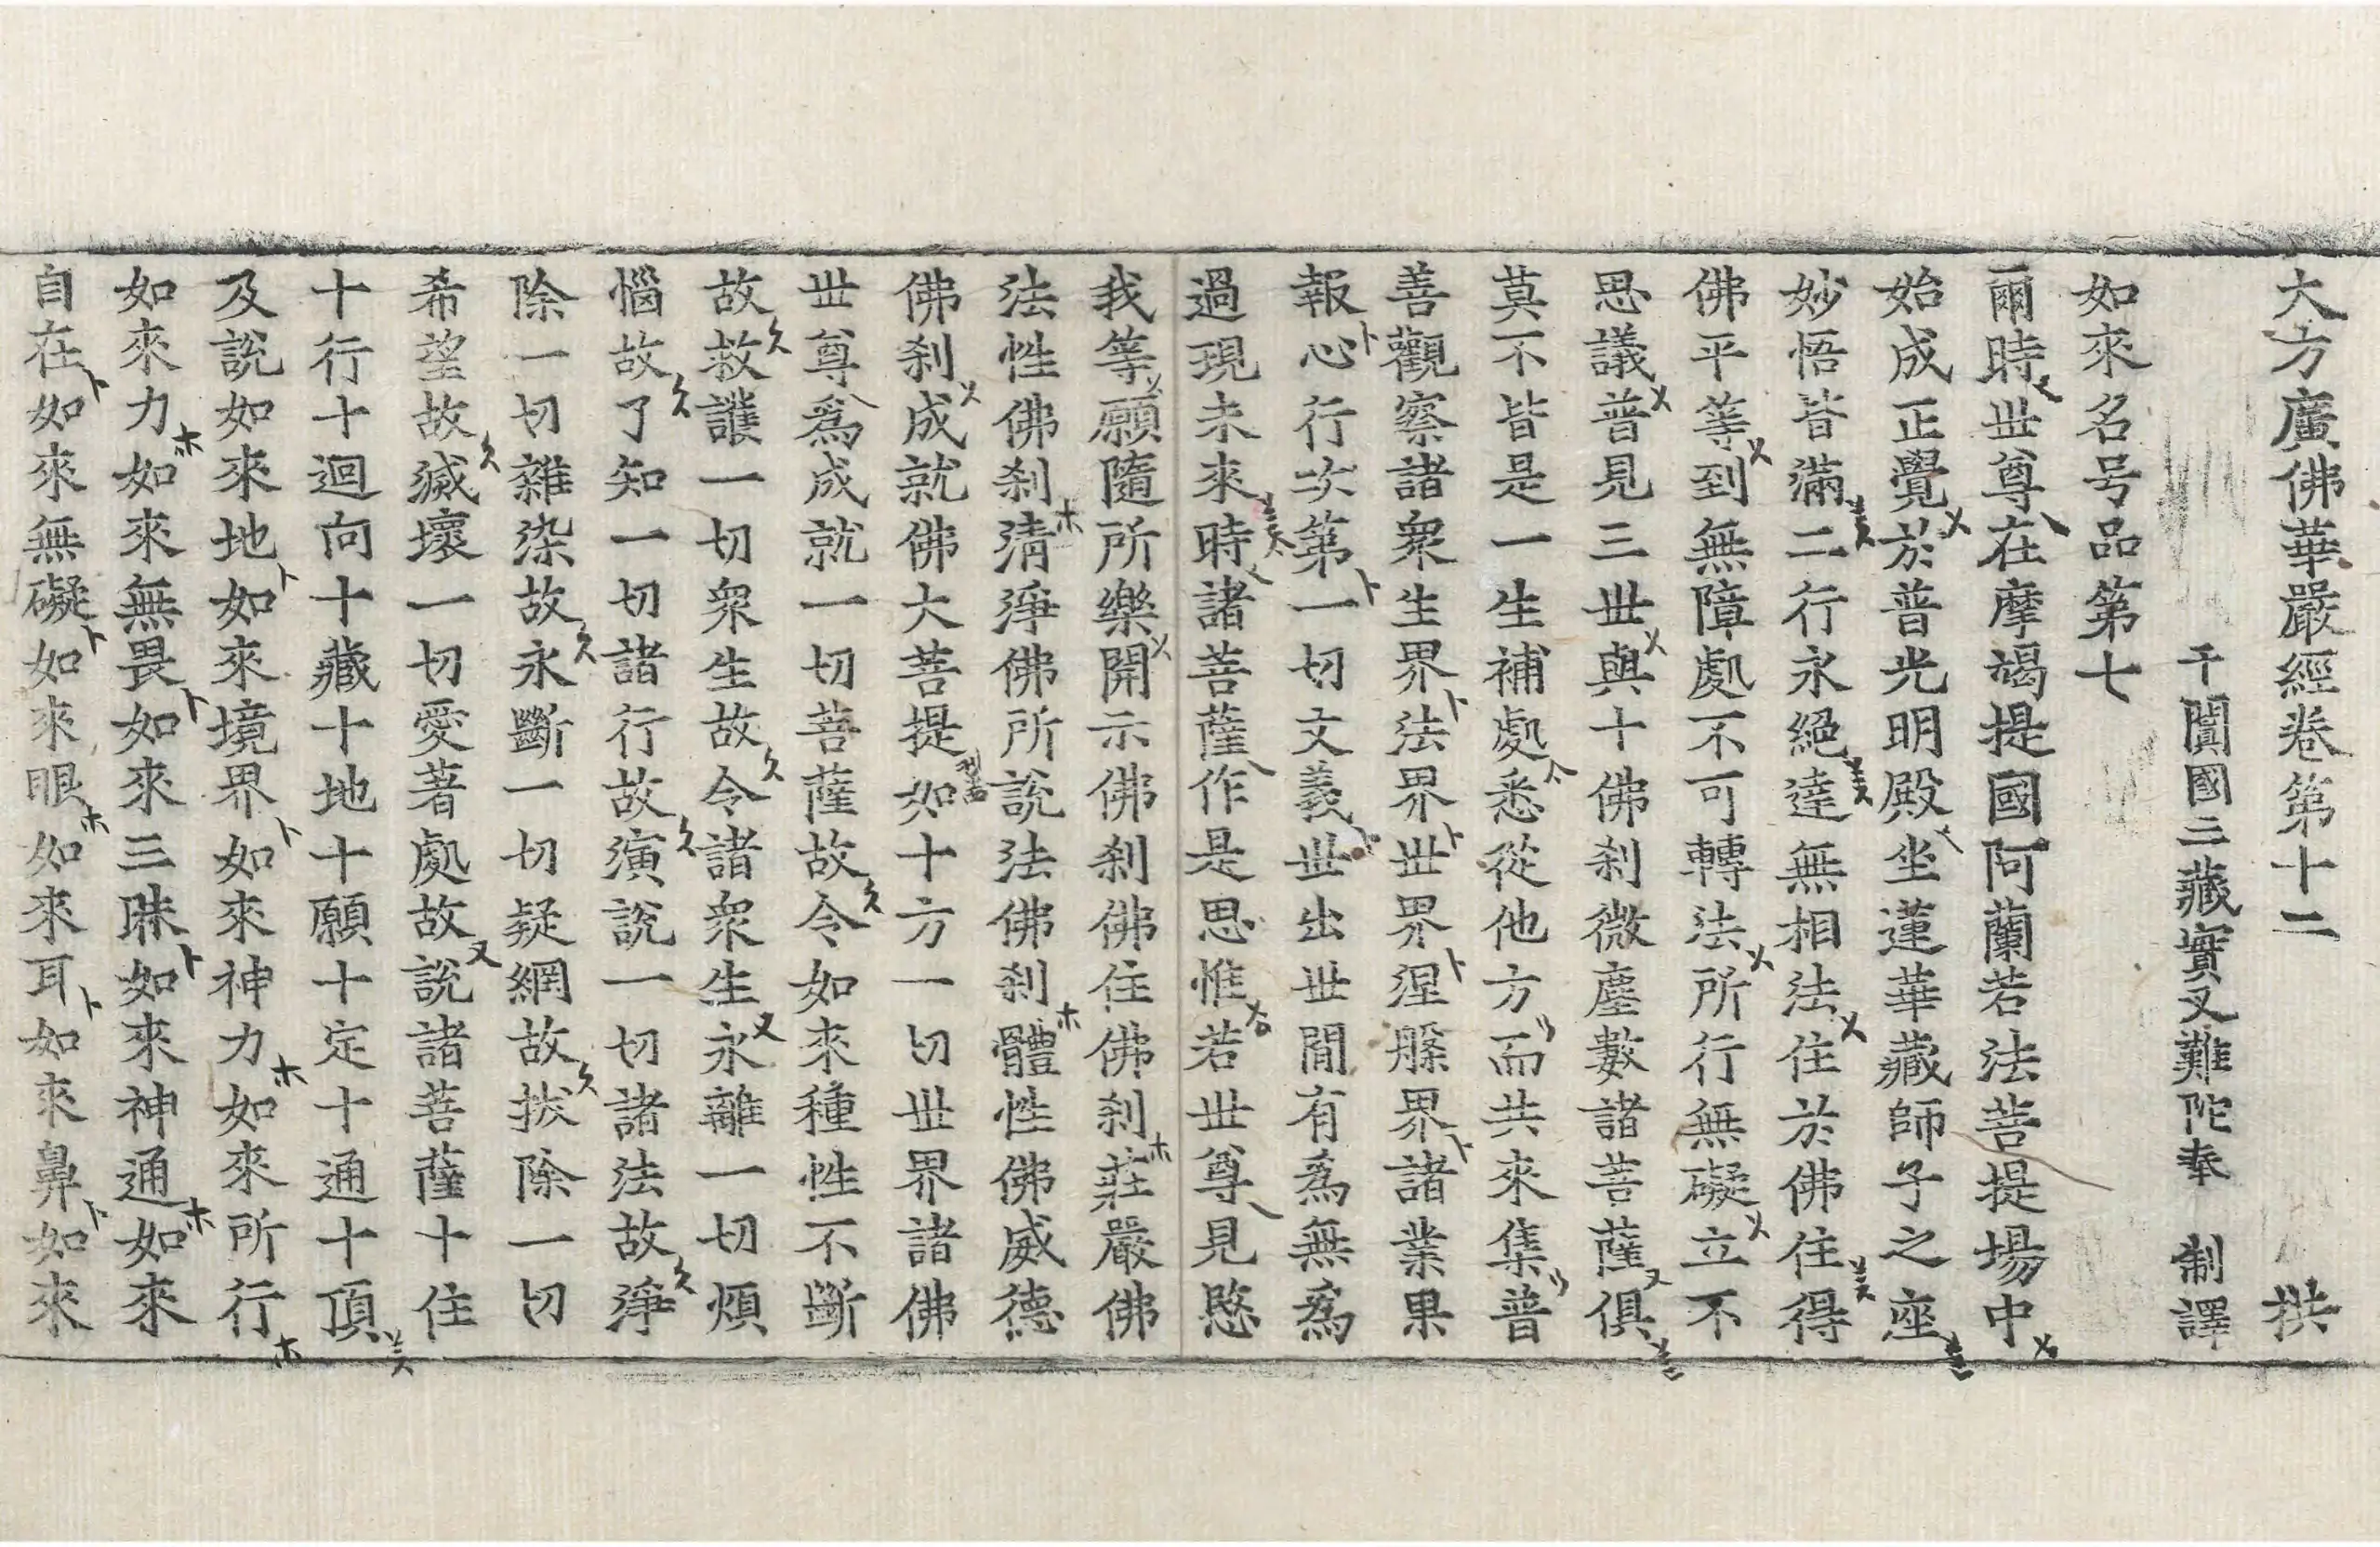 大方廣佛華嚴經卷第十二 拱
于闐國三藏實叉難陀奉 制譯
如來名号品第七
爾時世尊在摩竭提國阿蘭若法菩提場中
始成正覺於普光明殿坐蓮華藏師子之座
妙悟皆滿二行永絕達無相法住於佛住得
佛平等到無障處不可轉法所行無礙立不
思議普見三世與十佛刹微塵數諸菩薩俱
莫不皆是一生補處悉從他方而共來集普
善觀察諸衆生界法界世界涅槃界諸業果
報心行次第一切文義世出世間有爲無爲
過現未來時諸菩薩作是思惟若世尊見愍
我等願隨所樂開示佛刹佛住佛刹莊嚴佛
法性佛刹清淨佛所說法佛刹體性佛威德
佛刹成就佛大菩提如十方一切世界諸佛
世尊爲成就一切菩薩故令如來種性不斷
故救護一切衆生故令諸衆生永離一切煩
惱故了知一切諸行故演說一切諸法故淨
除一切雜染故永斷一切疑網故拔除一切
希望故滅壞一切愛著處故說諸菩薩十住
十行十迴向十藏十地十願十定十通十頂
及說如來地如來境界如來神力如來所行
如來力如來無畏如來三昧如來神通如來
自在如來無礙如來眼如來耳如來鼻如來